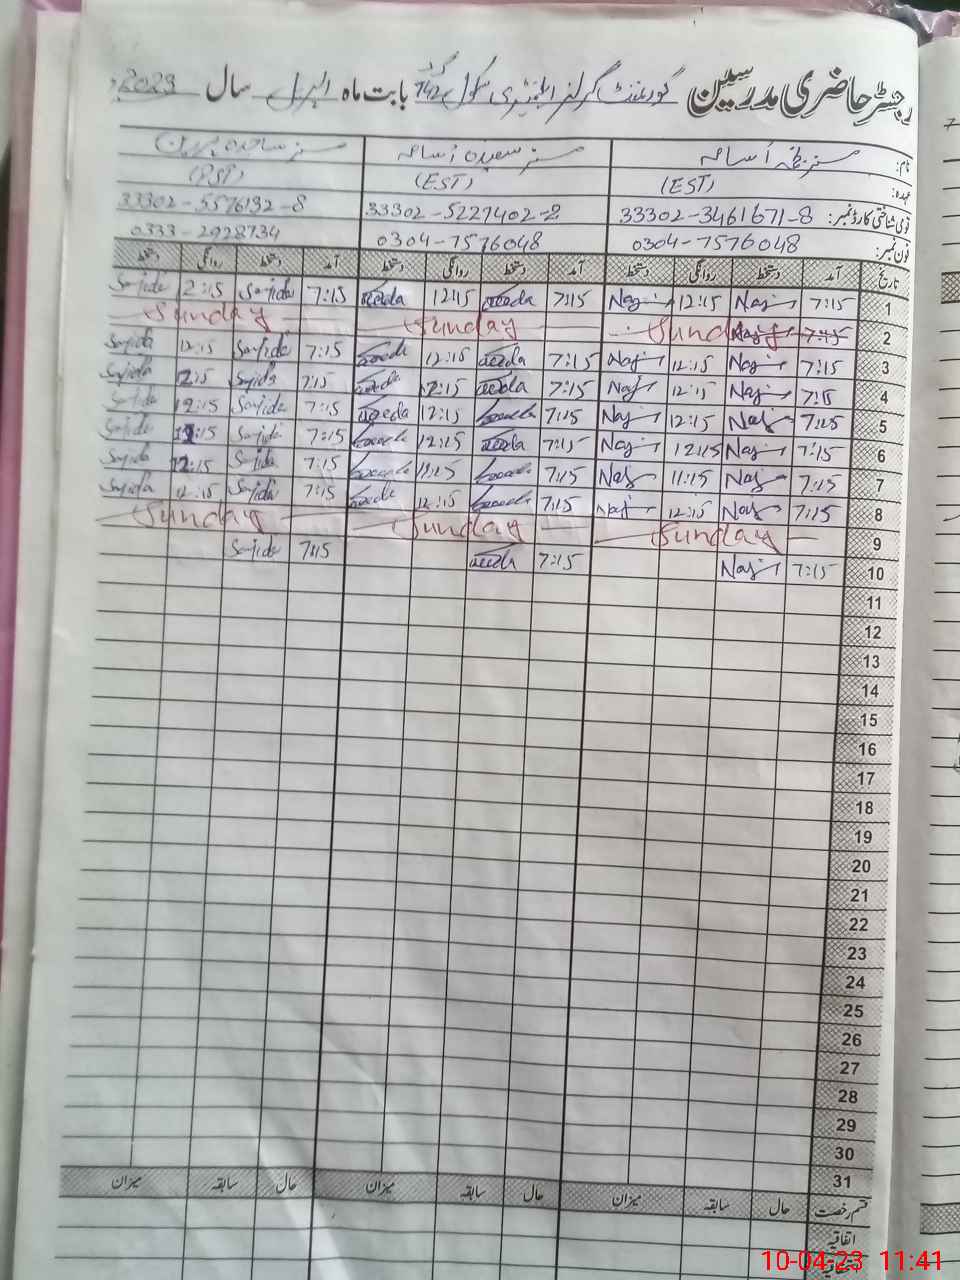 رجسٹر حاضری مدرسین گورنمنٹ گرلز ایلیمنٹری سکول 742 گ ب بابت ماہ اپریل سال 2023ء
نام: مسز اسامہ مسز سعیدہ اسامہ مسز ساجدہ پروین
عہدہ: (EST) (EST) (PST)
قومی شناختی کارڈ نمبر: 33302-3461671-8 33302-5227402-2 33302-5576132-8
فون نمبر: 0304-7576048 0304-7576048 0333-2928734
تاریخ آمد دستخط روانگی دستخط آمد دستخط روانگی دستخط آمد دستخط روانگی دستخط
1 7:15 Naj 12:15 Naj 7:15 aeeda 12:15 aeeda 7:15 Sajida 12:15 Sajida
2 7:15 Naj Sunday Sunday Sunday
3 7:15 Naj 12:15 Naj 7:15 aeeda 12:15 7:15 Sajida 12:15 Sajida
4 7:15 Naj 12:15 Naj 7:15 aeeda 12:15 aeeda 7:15 Sajida 12:15 Sajida
5 7:15 Naj 12:15 Naj 7:15 12:15 aeeda 7:15 Sajida 12:15 Sajida
6 7:15 Naj 12:15 Naj 7:15 aeeda 12:15 7:15 Sajida 12:15 Sajida
7 7:15 Naj 11:15 Naj 7:15 11:15 7:15 Sajida 12:15 Sajida
8 7:15 Naj 12:15 Naj 7:15 12:15 7:15 Sajida 12:15 Sajida
9 Sunday Sunday Sunday
10 7:15 Naj 7:15 aeeda 7:15 Sajida
11
12
13
14
15
16
17
18
19
20
21
22
23
24
25
26
27
28
29
30
31
قسم رخصت حال سابقہ میزان حال سابقہ میزان حال سابقہ میزان
اتفاقیہ
10-04-23 11:41